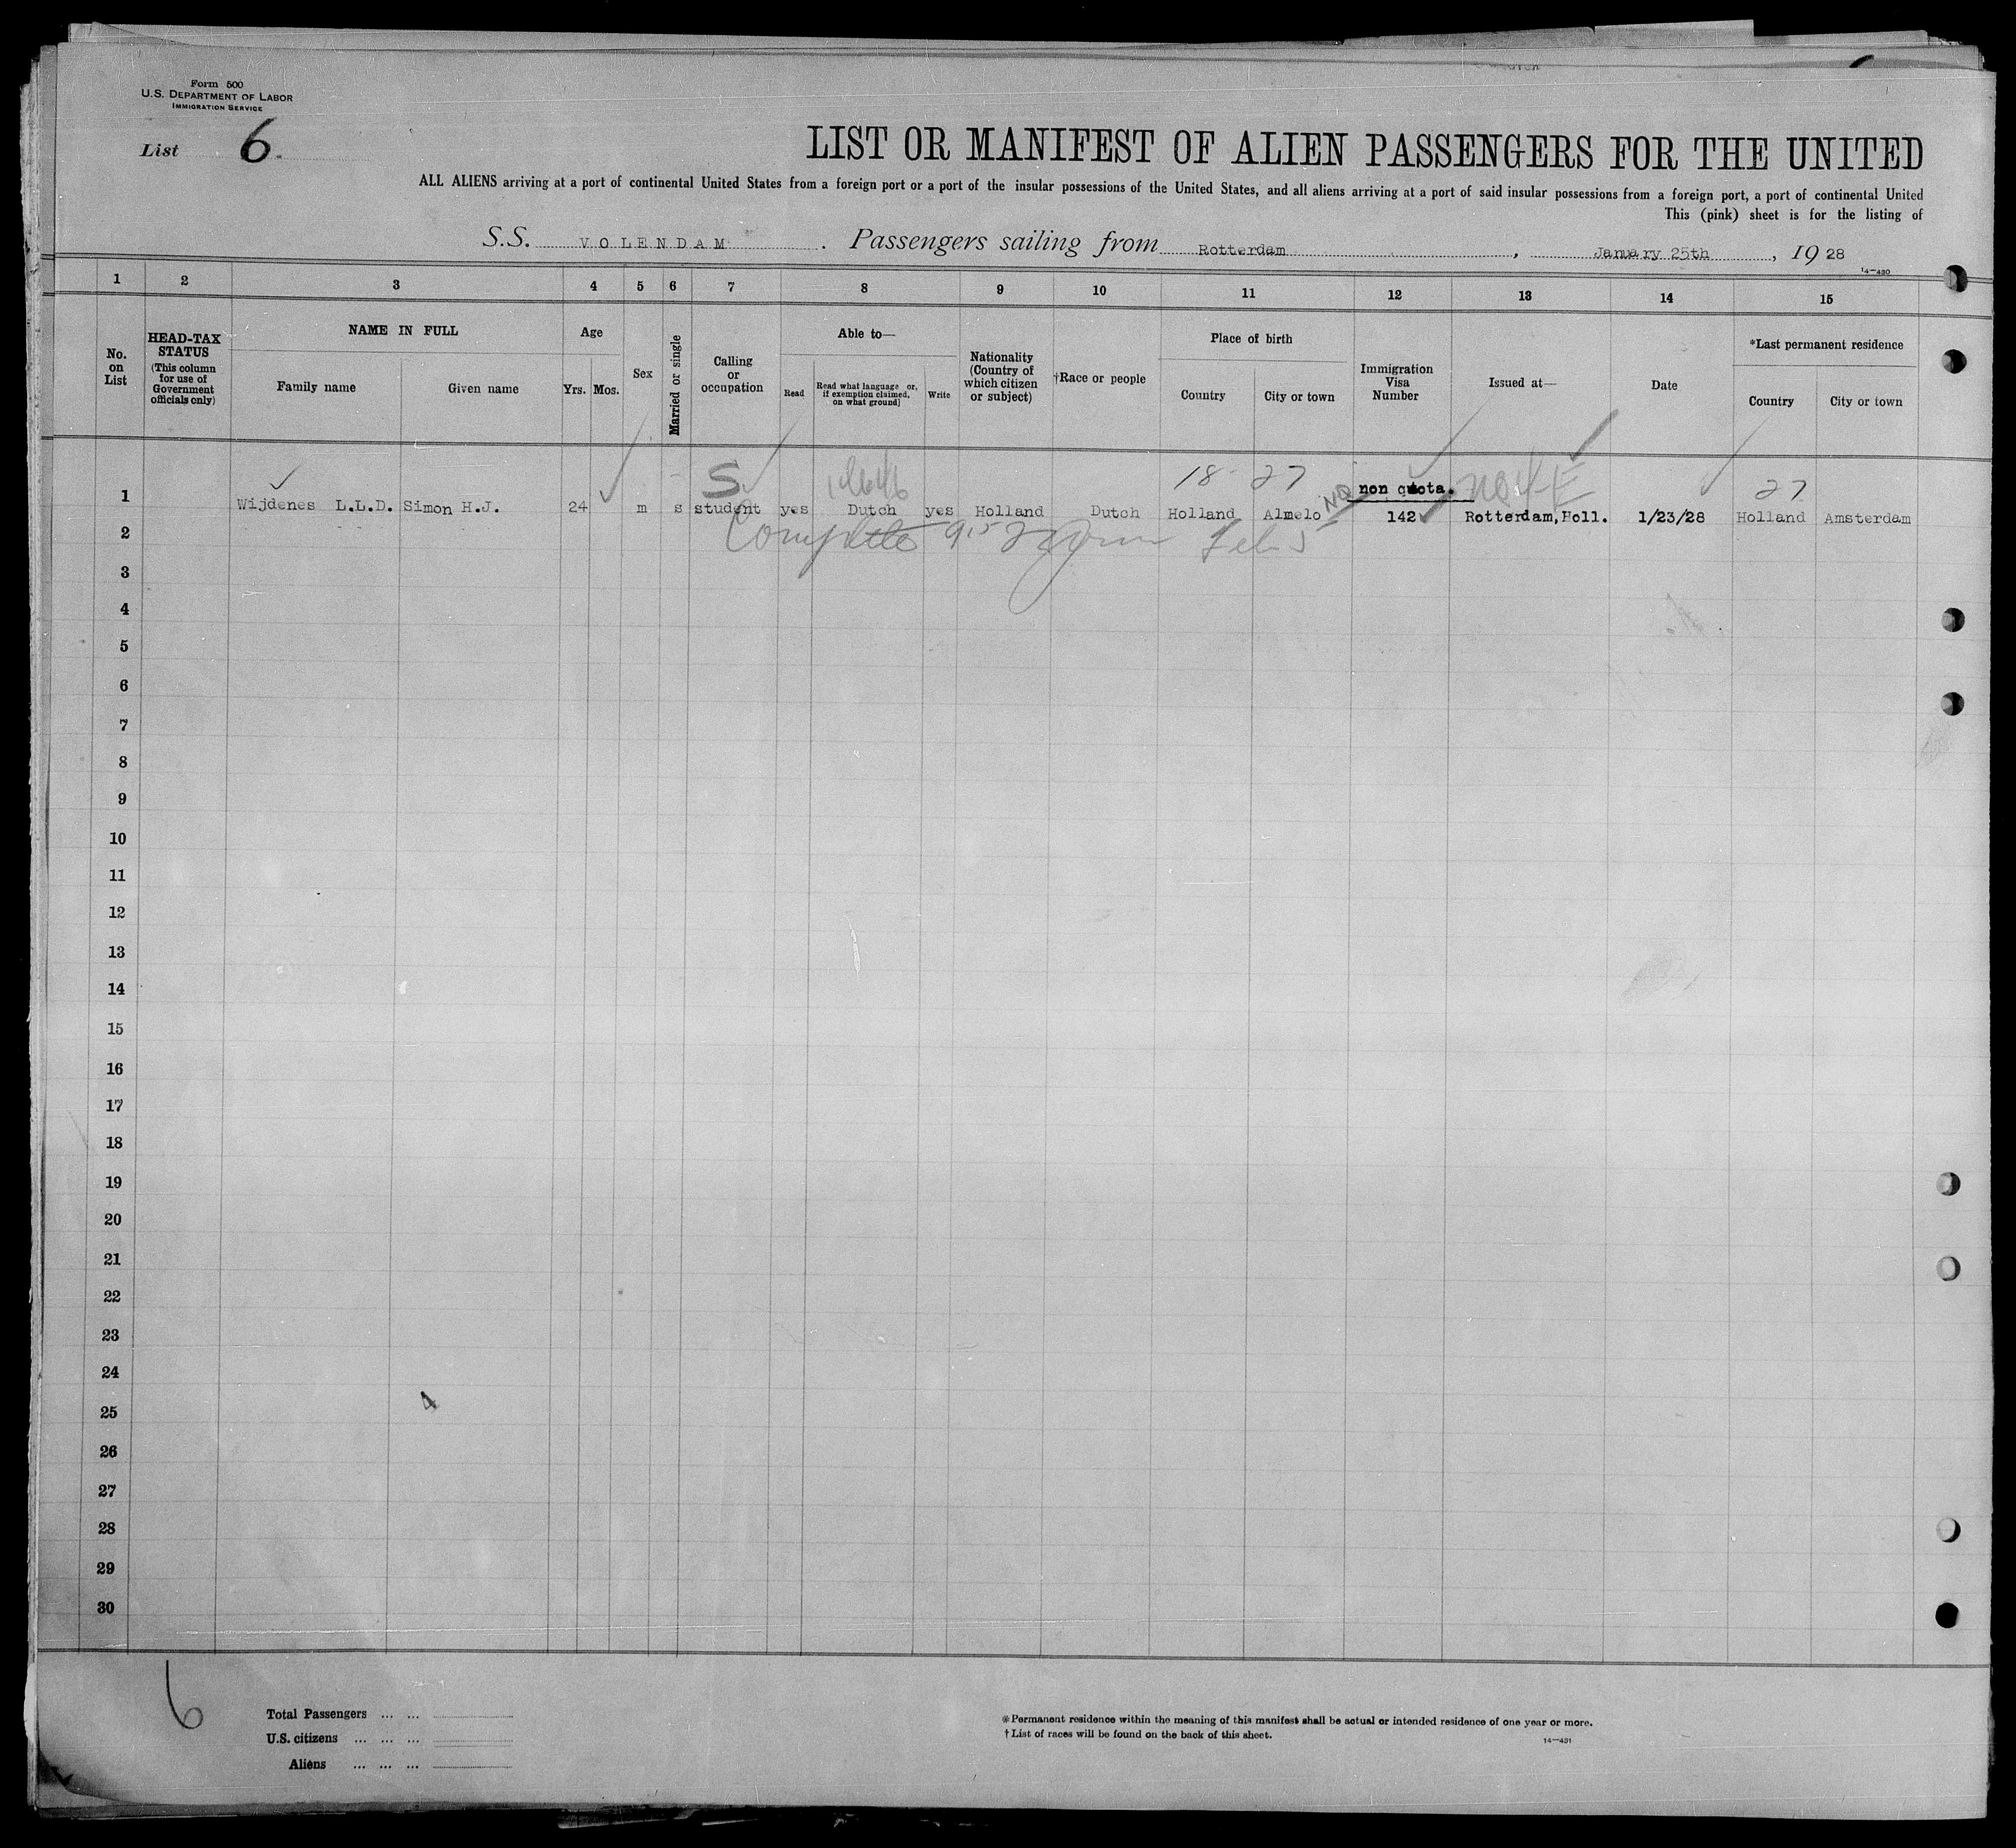 Form 500
U.S. DEPARTMENT OF LABOR
IMMIGRATION SERVICE
List 6.
LIST OR MANIFEST OF ALIEN PASSENGERS FOR THE UNITED
ALL ALIENS arriving at a port of continental United States from a foreign port or a port of the insular possessions of the United States, and all aliens arriving at a port of said insular possessions from a foreign port, a port of continental United
This (pink) sheet is for the listing of
S.S. VOLENDAM. Passengers sailing from Rotterdam, January 25th, 1928
14—430
1 2 3 4 5 6 7 8 9 10 11 12 13 14 15
No. on List
HEAD-TAX STATUS
(This column for use of Government officials only)
NAME IN FULL
Family name Given name
Age
Yrs. Mos.
Sex
Married or single
Calling or occupation
Able to—
Read
Read what language or, if exemption claimed, on what ground
Write
Nationality (Country of which citizen or subject)
†Race or people
Place of birth
Country City or town
Immigration Visa Number
Issued at—
Date
*Last permanent residence
Country City or town
S 18 27 27
NQ non quota.
1 Wijdenes L.L.D. Simon H.J. 24 m s student yes Dutch yes Holland Dutch Holland Almelo 142 Rotterdam,Holl. 1/23/28 Holland Amsterdam
2 Complete 915
3
4
5
6
7
8
9
10
11
12
13
14
15
16
17
18
19
20
21
22
23
24
25
26
27
28
29
30
4
6
Total Passengers ... ...
U.S. citizens ... ... ...
Aliens ... ... ...
*Permanent residence within the meaning of this manifest shall be actual or intended residence of one year or more.
†List of races will be found on the back of this sheet.
14—431